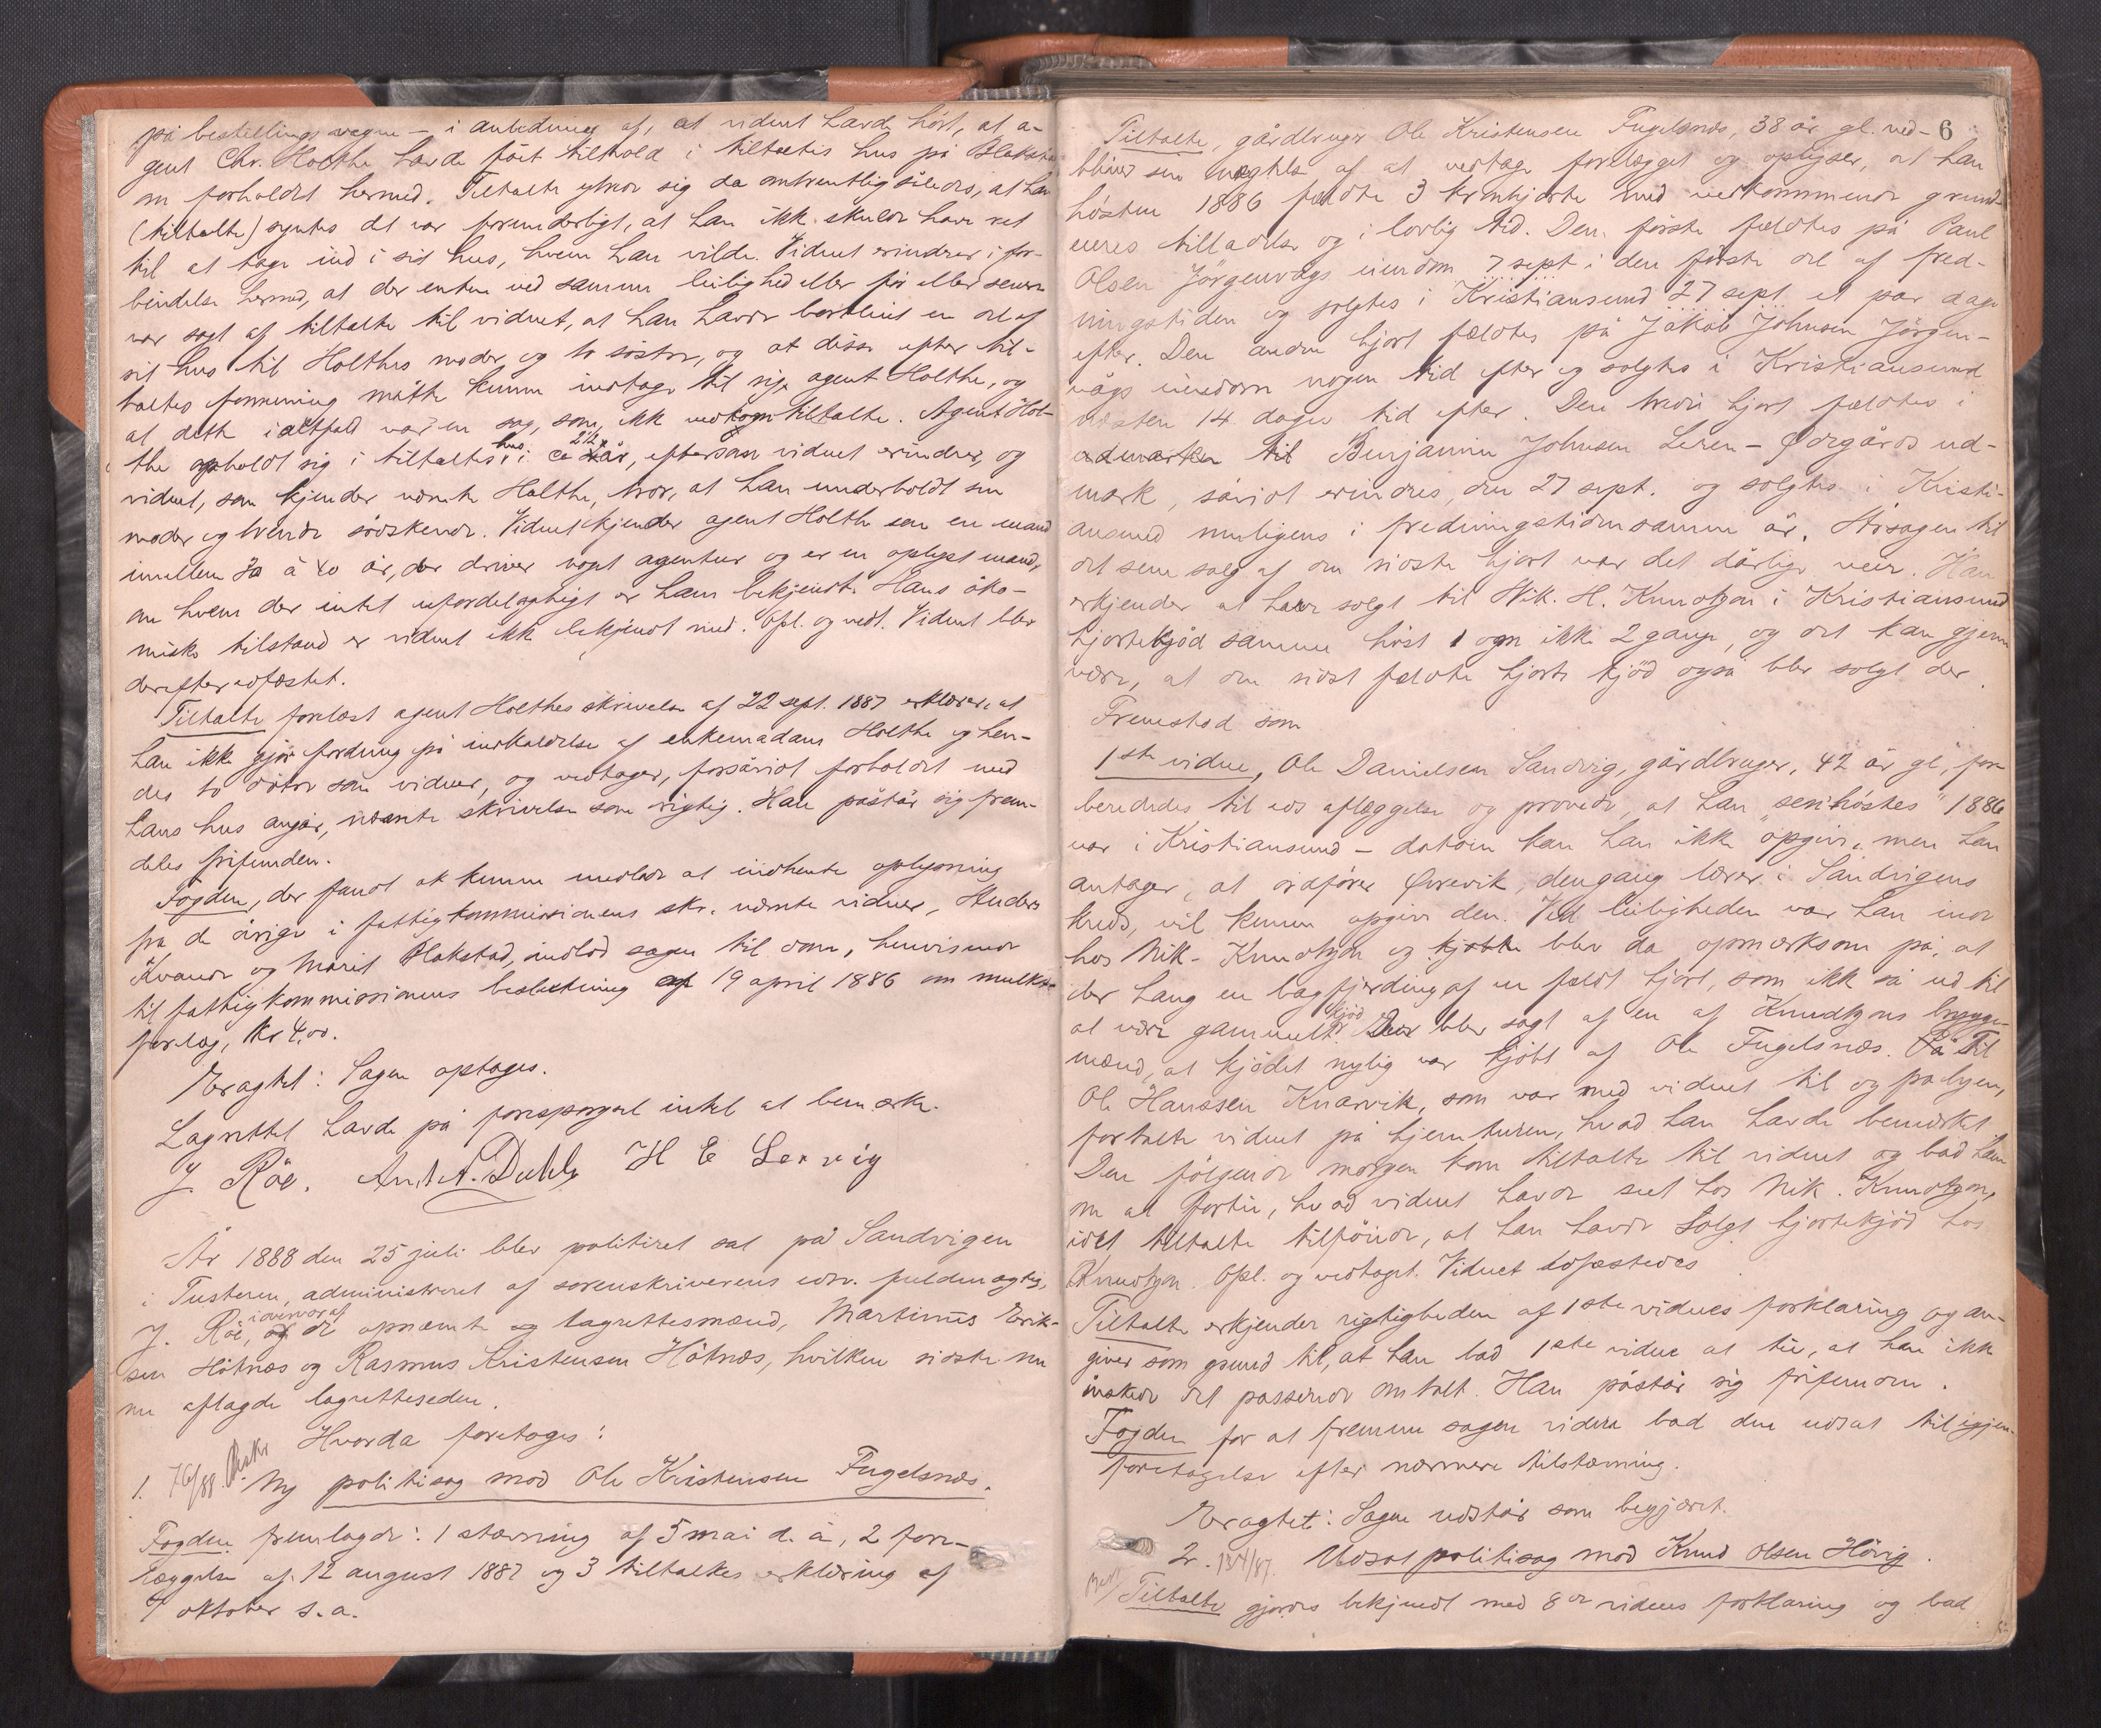 på bestillings vegne – i anledning af, at vidnet havde hört, at a-
gent Chr. Holthe havde fået tilhold i tiltaltes hus på Blakstad
om forholdet hermed. Tiltalte ytrede sig da omtrentlig således, at han
(tiltalte) syntes det var forunderligt, at han ikke skulde have ret
til at tage ind i sit hus, hvem han vilde. Vidnet erindrer i for-
bindelse hermed, at der enten ved samme leilighed eller för eller senere
var sagt af tiltalte til vidnet, at han havde bortleiet en del af
sit hus til Holthes moder og to söstre, og at disse efter til-
taltes formening måtte kunne indtage til sig agent Holthe, og
at dette i altfald var en sag, som ikke vedkom tiltalte. Agent Hol-
the opholdt sig i tiltaltes hus i ca 2 1/2 år, eftersom vidnet erindrer, og
vidnet, som kjender nævnte Holthe, tror, at han underholdt sin
moder og tvende södskende. Vidnet kjender agent Holthe som en mand
imellem 30 à 40 år, der driver noget agentur og er en oplyst mand,
om hvem der intet ufordelagtigt er ham bekjendt. Hans öko-
miske tilstand er vidnet ikke bekjendt med. Opl. og vedt. Vidnet blev
derefter edfæstet.
Tiltalte forelæst agent Holthes skrivelse af 22 sept. 1887 erklærer, at
han ikke gjör fordring på indkaldelse af enkemadam Holthe og hen-
des to dötre som vidner, og vedtager, forsåvidt forholdet med
hans hus angår, nævnte skrivelse som rigtig. Han påstår sig frem-
deles frifunden.
Fogden, der fandt at kunne undlade at indhente oplysning
fra de övrige i fattigkommissionens skr. nævnte vidner, Anders
Kvande og Marit Blakstad, indlod sagen til dom, henvisende
til fattigkommissionens beslutning af 19 april 1886 om mulkt-
forlæg, kr 4,00.
Eragtet: Sagen optages.
Lagrettet havde på forespörgsel intet at bemærke.
J. Röe. And. A. Dahle H E Lervig
År 1888 den 25 juli blev politiret sat på Sandvigen
i Tusteren, administreret af sorenskriverens edsv. fuldmægtig,
J. Röe, i overvær af de opnævnte lagrettesmænd, Martinus Erik-
sen Höknæs og Rasmus Kristensen Höknæs, hvilken sidste nu
nu aflagde lagretteseden.
Hvorda foretoges:
1. 76/88. Besk. Ny politisag mod Ole Kristensen Fugelsnæs.
Fogden fremlagde: 1 stævning af 5 mai d. å, 2 fore-
læggelse af 12 august 1887 og 3 tiltaltes erklæring af
7 oktober s. a.
6
Tiltalte, gårdbruger Ole Kristensen Fugelsnæs, 38 år gl. ved-
bliver sin nægtelse af at vedtage forelægget og oplyser, at han
hösten 1886 fældte 3 kronhjorte med vedkommende grund-
eieres tilladelse og i lovlig tid. Den förste fældtes på Paul
Olsen Jörgenvågs eiendom 7 sept i den förste del af fred-
ningstiden og solgtes i Kristiansund 27 sept. et par dage
efter. Den anden hjort fældtes på Jakob Johnsen Jörgen-
vågs eiendom nogen tid efter og solgtes i Kristiansund
næsten 14 dages tid efter. Den tredie hjort fældtes i
udmarken til Benjamin Johnsen Leren – Ödegårds ud-
mark, såvidt erindres, den 27 sept. og solgtes i Kristi-
ansund muligens i fredningstiden samme år. Årsagen til
det sene salg af den sidste hjort var det dårlige veir. Han
erkjender at have solgt til Nik. H. Knudtzon i Kristiansund
hjortekjöd samme höst 1 og ikke 2 gange, og det kan gjerne
være, at den sidst fældte hjorts kjöd også blev solgt der.
Fremstod som
1ste vidne, Ole Danielsen Sandvig, gårdbruger, 42 år gl, for-
beredtes til eds aflæggelse og provede, at han "senhöstes" 1886
var i Kristiansund – datoen kan han ikke opgive, men han
antager, at ordförer Örevik, dengang lærer i Sandvigens
kreds, vil kunne opgive den. Ved leiligheden var han inde
hos Nik. Knudtzon og blev da opmærksom på, at
der hang en bagfjerding af en fældt hjort, som ikke så ud til
at være gammelt kjöd. Der blev sagt af en af Knudtzons brygge-
mænd, at kjödet nylig var kjöbt af Ole Fugelsnæs. Til
Ole Hanssen Knarvik, som var med vidnet til og fra byen,
fortalte vidnet på hjemturen, hvad han havde bemærket
Den fölgende morgen kom tiltalte til vidnet og bad ham
om at fortie, hvad vidnet havde seet hos Nik. Knudtzon,
idet tiltalte tilföiede, at han havde solgt hjortekjöd hos
Knudtzon. Opl. og vedtaget. Vidnet edfæstedes
Tiltalte erkjender rigtigheden af 1ste vidnes forklaring og an-
giver som grund til, at han bad 1ste vidne at tie, at han ikke
önskede det passerede omtalt. Han påstår sig frifunden.
Fogden for at fremme sagen videre bad den udsat til igjen-
foretagelse efter nærmere tilstævning.
Eragtet: Sagen udstår som begjæret.
2. 134/87. Udsat politisag mod Knud Olsen Hövig.
Tiltalte gjordes bekjendt med 8de vidnes forklaring og bad